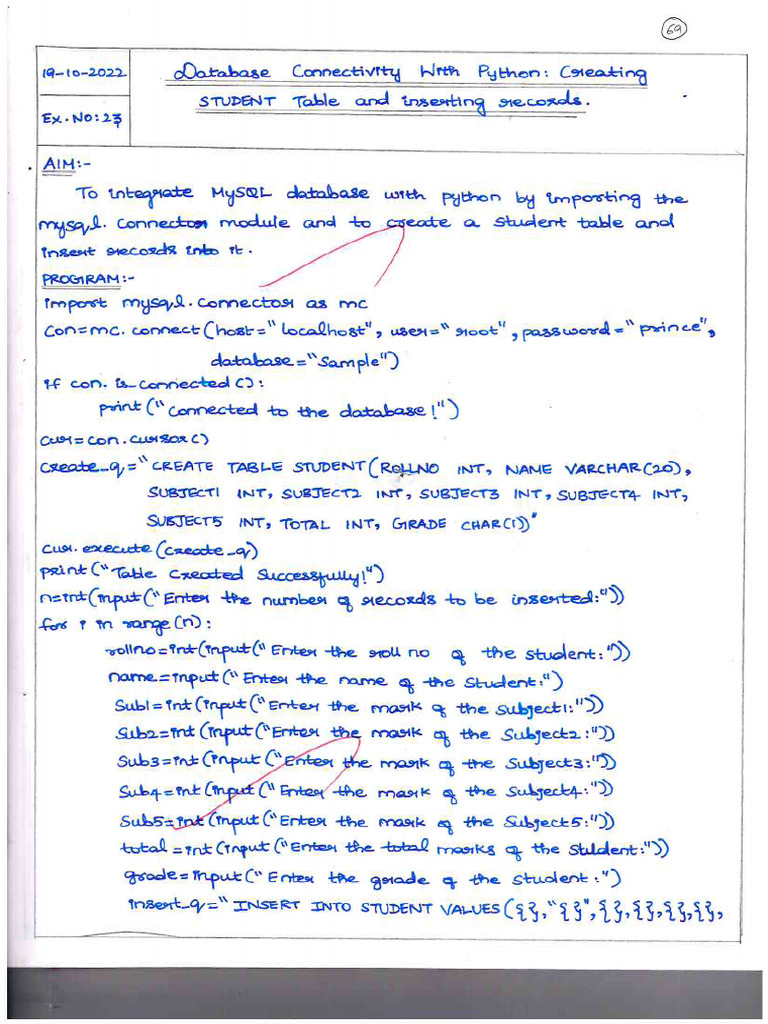 69
19-10-2022
Database Connectivity With Python: Creating
STUDENT Table and inserting records.
Ex.No:23
AIM:-
To integrate MySQL database with python by importing the
mysql.connector module and to create a student table and
insert records into it.
PROGRAM:-
import mysql.connector as mc
con=mc.connect(host="localhost", user="root", password="prince",
database="Sample")
if con.is_connected():
print("Connected to the database!")
cur=con.cursor()
create_q="CREATE TABLE STUDENT(ROLLNO INT, NAME VARCHAR(20),
SUBJECT1 INT, SUBJECT2 INT, SUBJECT3 INT, SUBJECT4 INT,
SUBJECT5 INT, TOTAL INT, GRADE CHAR(1))"
cur.execute(create_q)
print("Table Created Successfully!")
n=int(input("Enter the number of records to be inserted:"))
for i in range(n):
rollno=int(input("Enter the roll no of the student:"))
name=input("Enter the name of the Student:")
Sub1=int(input("Enter the mark of the Subject1:"))
Sub2=int(input("Enter the mark of the Subject2:"))
Sub3=int(input("Enter the mark of the Subject3:"))
Sub4=int(input("Enter the mark of the Subject4:"))
Sub5=int(input("Enter the mark of the Subject5:"))
total=int(input("Enter the total marks of the student:"))
grade=input("Enter the grade of the student:")
insert_q="INSERT INTO STUDENT VALUES({},"{}",{},{},{},{},